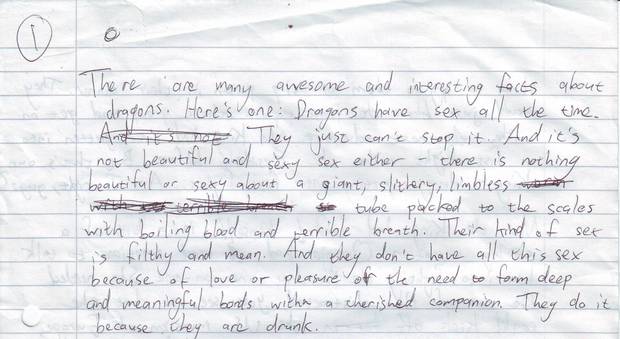 1
There are many awesome and interesting facts about
dragons. Here's one: Dragons have sex all the time.
And it's not They just can't stop it. And it's
not beautiful and sexy sex either - there is nothing
beautiful or sexy about a giant, slithery, limbless worm
with terrible breath tube packed to the scales
with boiling blood and terrible breath. Their kind of sex
is filthy and mean. And they don't have all this sex
because of love or pleasure or the need to form deep
and meaningful bonds with a cherished companion. They do it
because they are drunk.